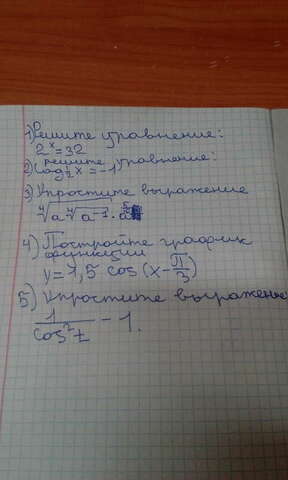 1) Решите уравнение:
2ˣ=32
2) решите уравнение:
log½ x = -1
3) Упростите выражение
∜a ∜a⁻¹ ·
4) Постройте график
функции
y=1,5 cos (x - π/3)
5) Упростите выражение
1/cos²t - 1.